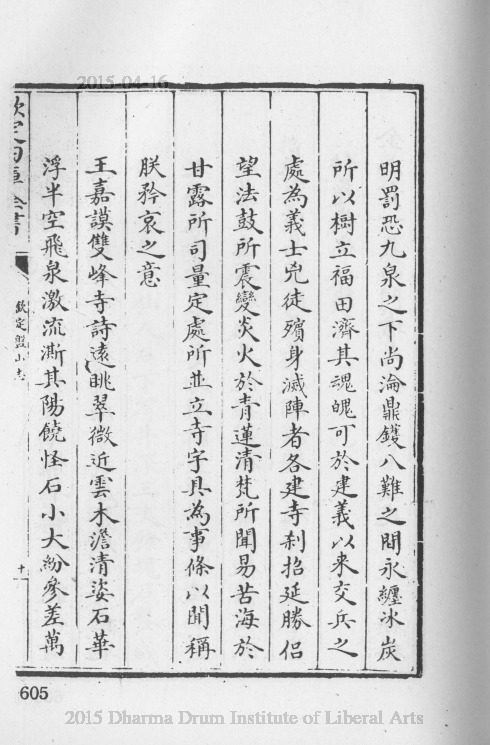 2015-04-16
明罰恐九泉之下尚淪鼎鑊八難之間永纏冰炭
所以樹立福田濟其魂魄可於建義以來交兵之
處為義士兇徒殞身滅陣者各建寺刹招延勝侶
望法鼓所震變炎火於青蓮清梵所聞易苦海於
甘露所司量定處所並立寺字具為事條以聞稱
朕矜哀之意
王嘉謨雙峰寺詩遠眺翠微近雲木澹清姿石華
浮半空飛泉激流漸其陽饒怪石小大紛參差萬
欽定四庫全書
欽定盤山志
十
605
2015 Dharma Drum Institute of Liberal Arts